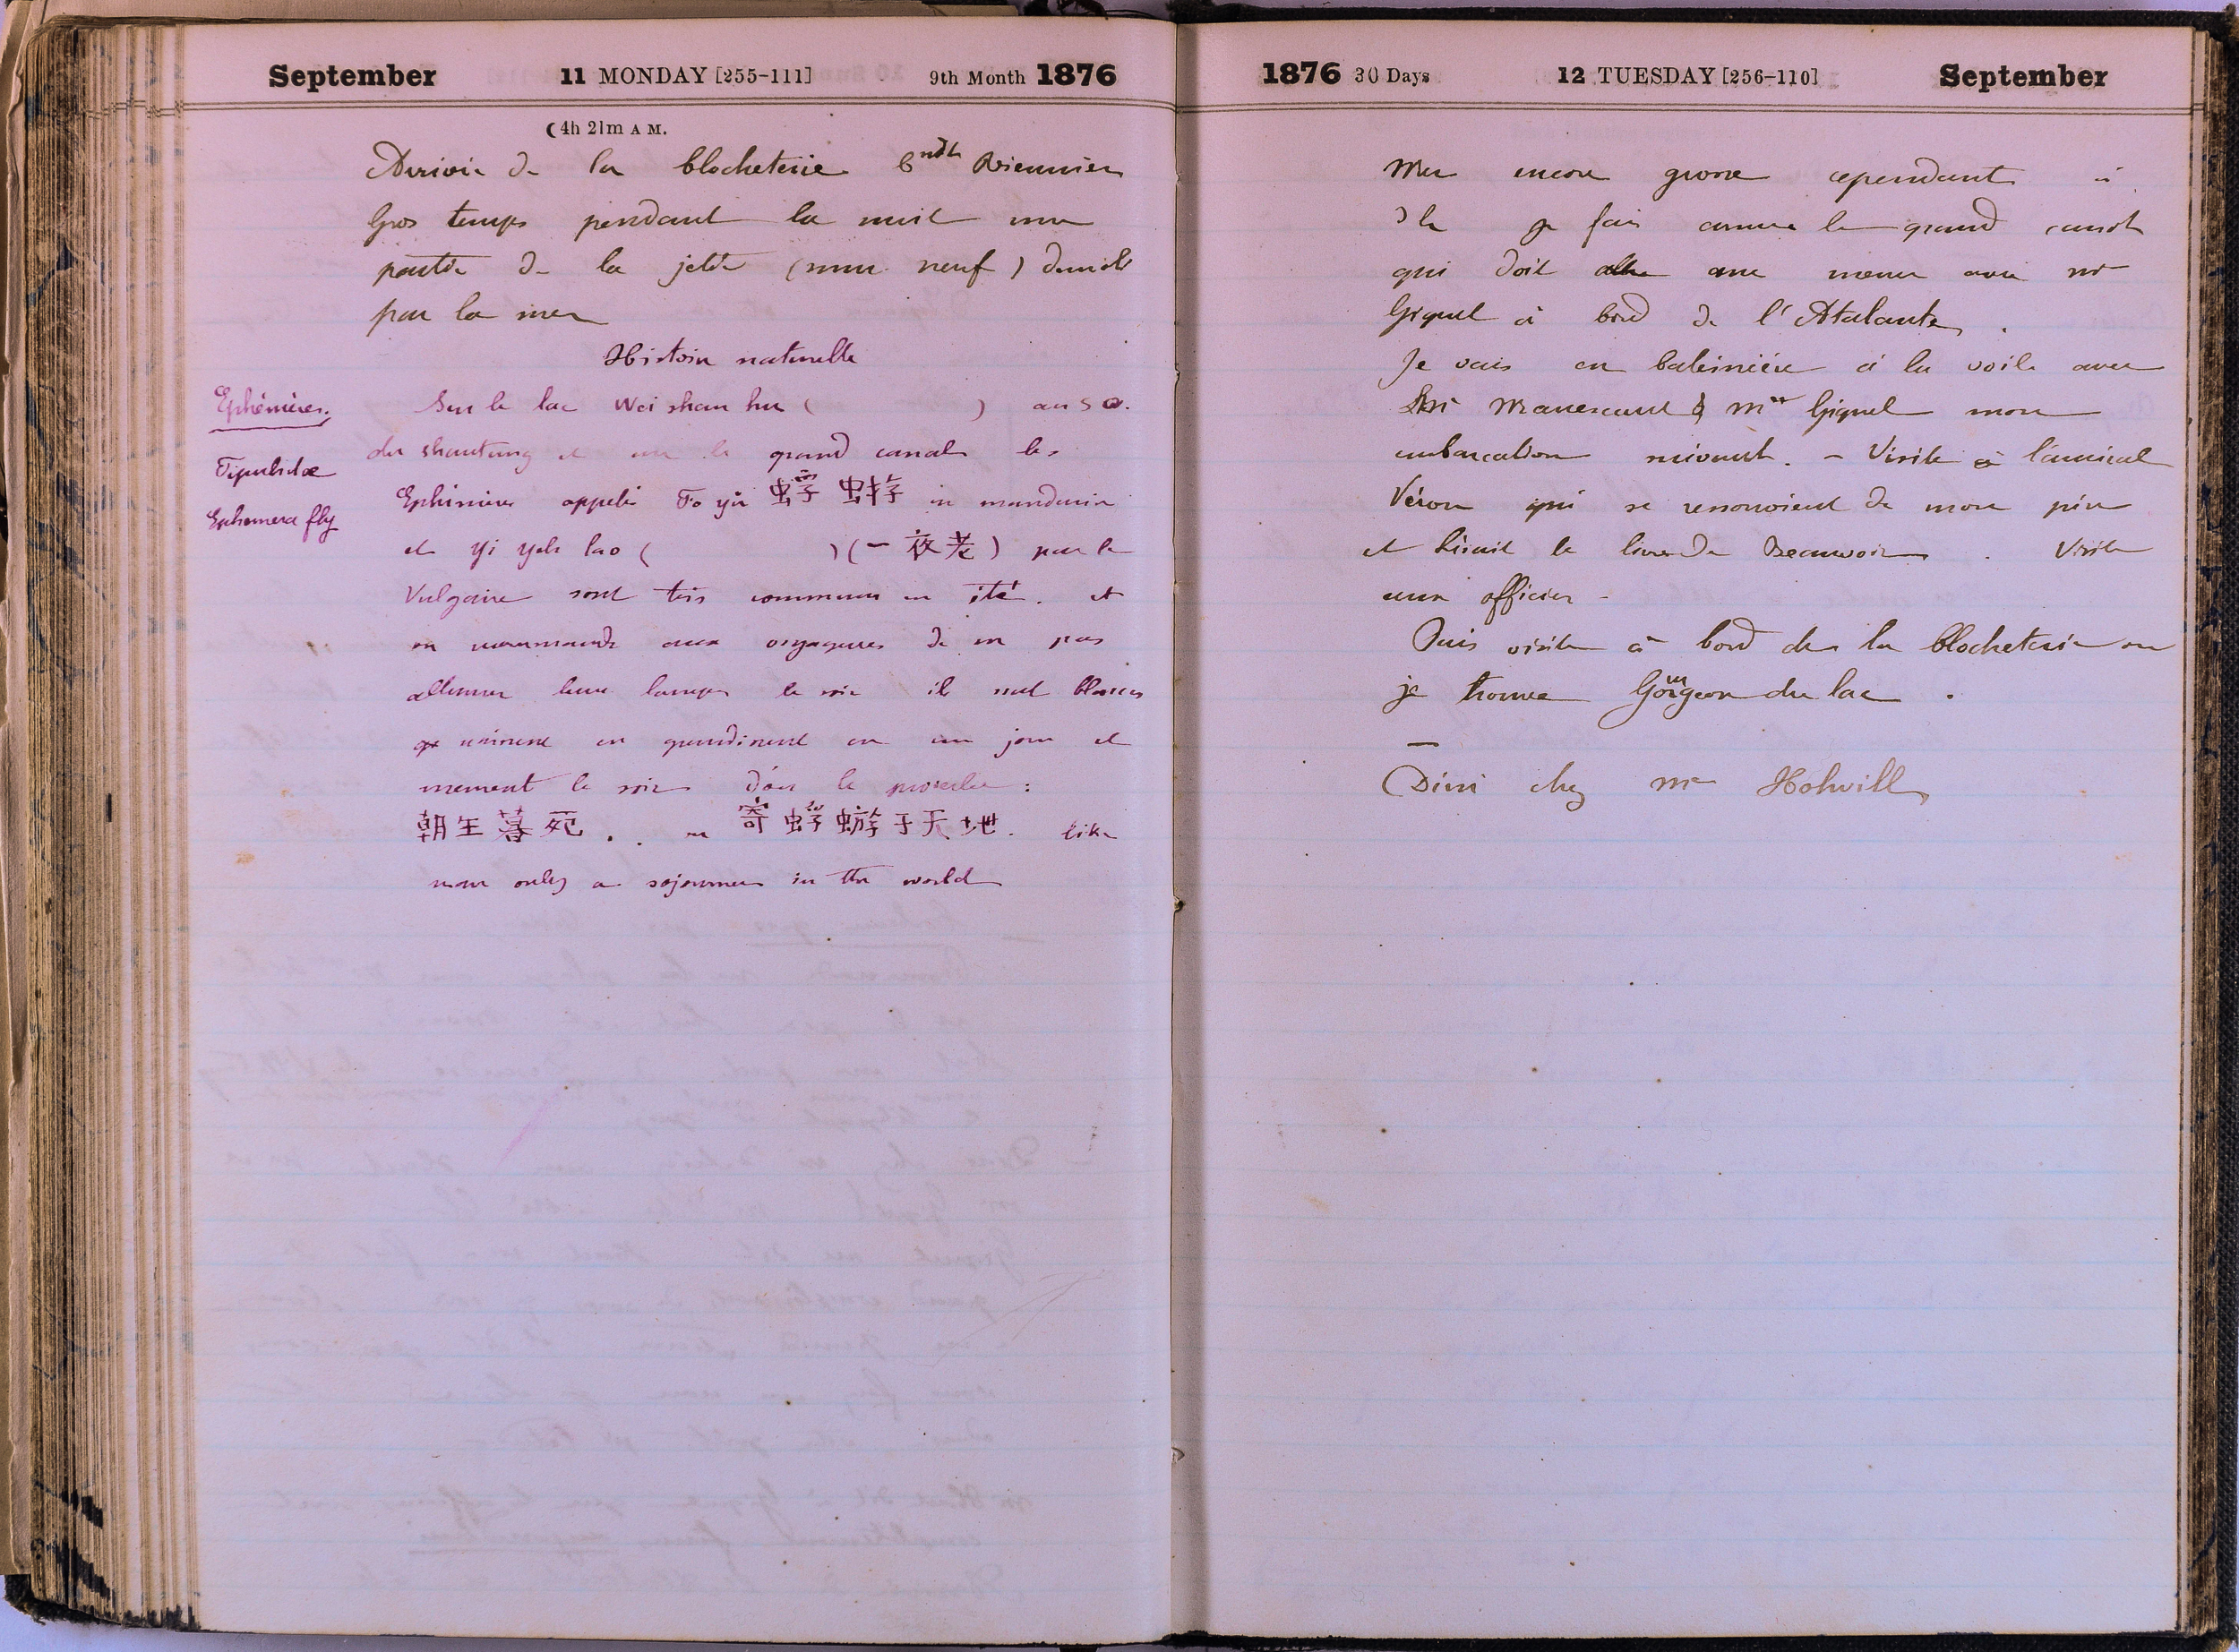 September 11 MONDAY [255-111] 9th Month 1876
(4h 21m A M.
Arrivée de la Clocheterie Cndt Viennier
Gros temps pendant la nuit une
partie de la jetée (mur neuf) démoli
par la mer
Histoire naturelle
Ephémères.
Sur le lac Wei shan hu ( ) au S O.
du Shantung et sur le grand canal les
Tipulidae
Ephémères appelés Fo yü 蜉蝣 in mandarin
Ephemera fly
et Yi yeh lao ( ) (一夜老) par le
Vulgaire sont très communs en été. et
on recommande aux voyageurs de ne pas
allumer leurs lampes le soir ils sont blancs
naissent en un jour et
meurent le soir d'où le proverbe :
朝生暮死 . . ou 寄蜉蝣于天地. like
man only a sojourner in the world
1876 30 Days 12 TUESDAY [256-110] September
Mer encore grosse cependant à
je fais armer le grand canot
qui doit me mener avec Mr
Giquel à bord de l'Atalante .
Je vais en baleinière à la voile avec
Manescaut & Mr Giquel mon
embarcation suivant. - Visite à l'amiral
Véron qui se ressouvient de mon père
et lisait le livre de Beauvoir . Visite
aux officiers -
Puis visite à bord de la Clocheterie où
je trouve Gourgeon du lac .
—
Diné chez Mr Holwill